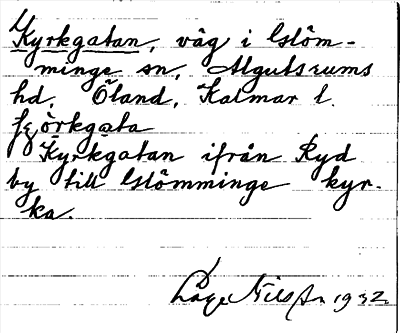 Kyrkgatan, väg i Glöm-
minge sn, Algutsrums
hd, Öland, Kalmar l.
Kyrkgatan ifrån Ryd
by till Glömminge kyr-
ka.
Åke Nilsson 1932